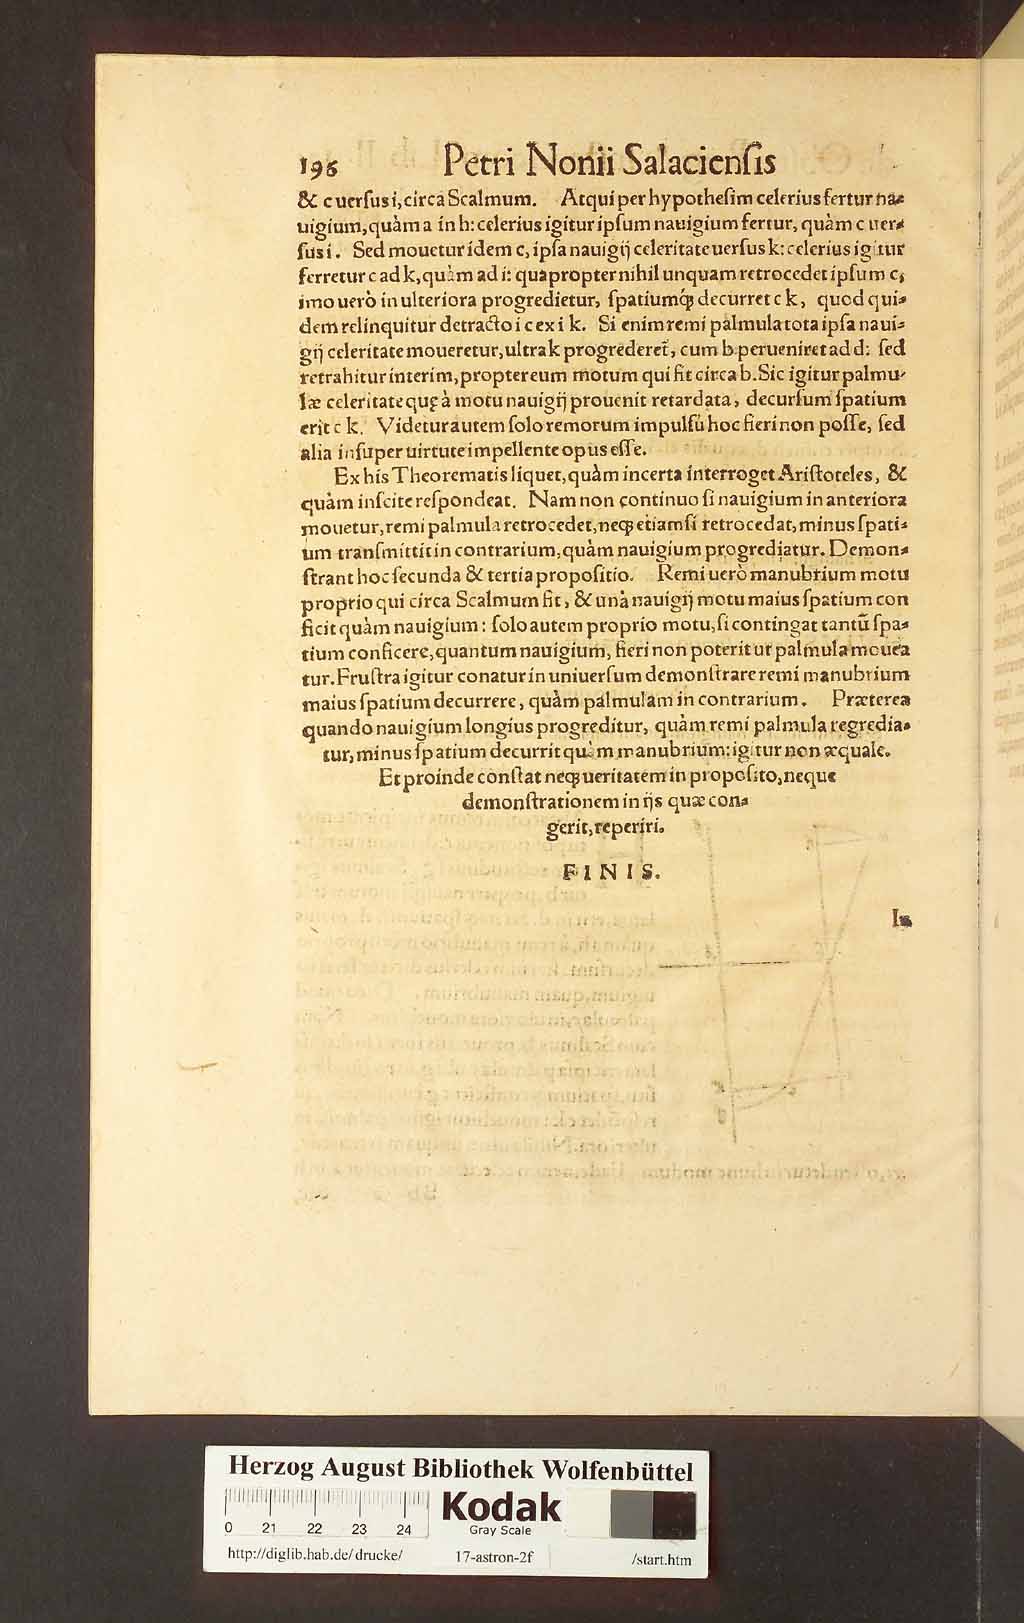 196 Petri Nonii Salaciensis
& c uersus i, circa Scalmum. Atqui per hypothesim celerius fertur na-
uigium, quàm a in h: celerius igitur ipsum nauigium fertur, quàm c uer-
sus i. Sed mouetur idem c, ipsa nauigij celeritate uersus k: celerius igitur
ferretur c ad k, quàm ad i: quapropter nihil unquam retrocedet ipsum c,
imo uerò in ulteriora progredietur, spatiumq́; decurret c k, quod qui-
dem relinquitur detracto i c ex i k. Si enim remi palmula tota ipsa naui-
gij celeritate moueretur, ultra k progrederet̃, cum b perueniret ad d: sed
retrahitur interim, propter eum motum qui fit circa b. Sic igitur palmu-
læ celeritate quę à motu nauigij prouenit retardata, decursum spatium
erit c k. Videtur autem solo remorum impulsu hoc fieri non posse, sed
alia insuper uirtute impellente opus esse.
Ex his Theorematis liquet, quàm incerta interroget Aristoteles, &
quàm inscite respondeat. Nam non continuo si nauigium in anteriora
mouetur, remi palmula retrocedet, neq; etiamsi retrocedat, minus spati-
um transmittit in contrarium, quàm nauigium progrediatur. Demon-
strant hoc secunda & tertia propositio. Remi uerò manubrium motu
proprio qui circa Scalmum fit, & unà nauigij motu maius spatium con
ficit quàm nauigium: solo autem proprio motu, si contingat tantũ spa-
tium conficere, quantum nauigium, fieri non poterit ut palmula mouea
tur. Frustra igitur conatur in uniuersum demonstrare remi manubrium
maius spatium decurrere, quàm palmulam in contrarium. Præterea
quando nauigium longius progreditur, quàm remi palmula regredia-
tur, minus spatium decurrit quàm manubrium: igitur non æquale.
Et proinde constat neq; ueritatem in proposito, neque
demonstrationem in ijs quæ con-
gerit, reperiri.
FINIS.
Herzog August Bibliothek Wolfenbüttel
0 21 22 23 24
Kodak
Gray Scale
http://diglib.hab.de/drucke/ 17-astron-2f /start.htm